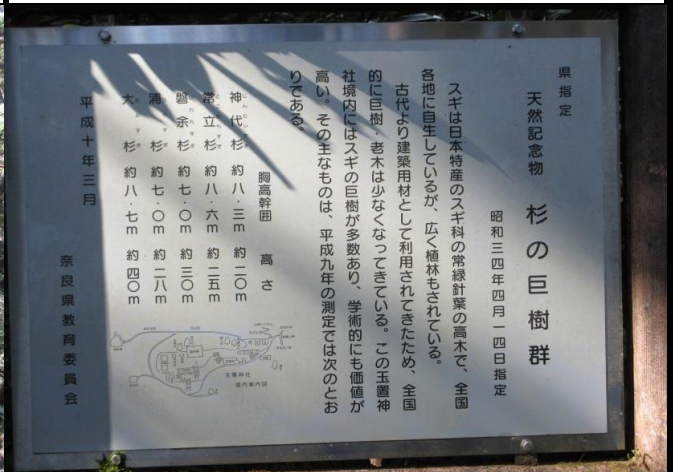 県指定
天然記念物 杉の巨樹群
昭和三四年四月一四日指定
スギは日本特産のスギ科の常緑針葉の高木で、全国
各地に自生しているが、広く植林もされている。
古代より建築用材として利用されてきたため、全国
的に巨樹・老木は少なくなってきている。この玉置神
社境内にはスギの巨樹が多数あり、学術的にも価値が
高い。その主なものは、平成九年の測定では次のとお
りである。
胸高幹囲 高さ
神代杉 約八・三m 約二〇m
常立杉 約八・六m 約二五m
磐余杉 約七・〇m 約三〇m
浦杉 約七・〇m 約二八m
大杉 約八・七m 約四〇m
玉置神社
境内案内図
平成十年三月
奈良県教育委員会